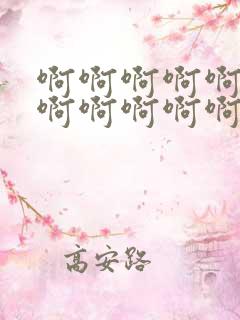 啊啊啊啊啊
啊啊啊啊啊
高安路